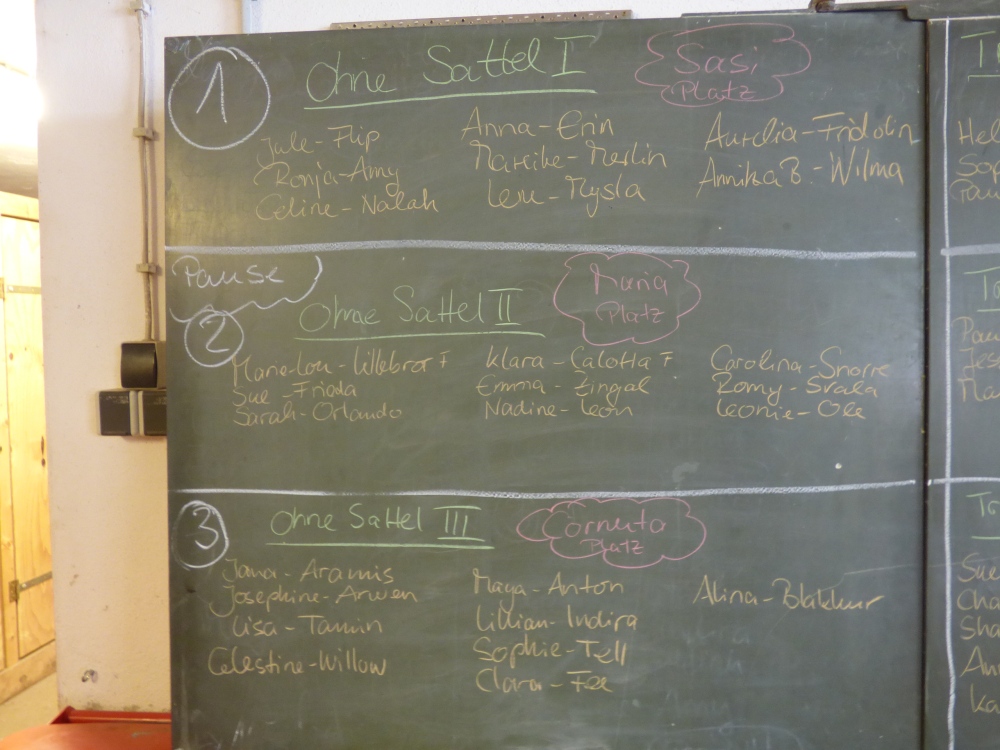 1
Ohne Sattel I
Sasi
Platz
Jule - Flip
Ronja - Amy
Celine - Nalah
Anna - Erin
Mareike - Merlin
Leni - Mysla
Aurelia - Fridolin
Annika B. - Wilma
Pause
2
Ohne Sattel II
Maria
Platz
Marie-Lou - Lillebror F
Sue - Frieda
Sarah - Orlando
Klara - Calotta F
Emma - Zingal
Nadine - Leon
Carolina - Snorre
Romy - Svala
Leonie - Ole
3
Ohne Sattel III
Cornuta
Platz
Jana - Aramis
Josephine - Arwen
Lisa - Tamin
Celestine - Willow
Maya - Anton
Lillian - Indira
Sophie - Tell
Clara - Fee
Alina -
Sue